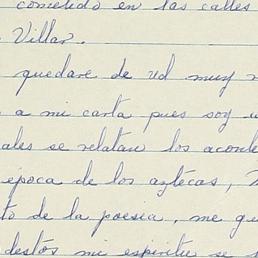 cometido en las calles
Villar.
quedare de ud muy
a mi carta pues soy
ales se relatan los aconte
epoca de los aztecas,
to de la poesia, me gu
destos mi espiritu se